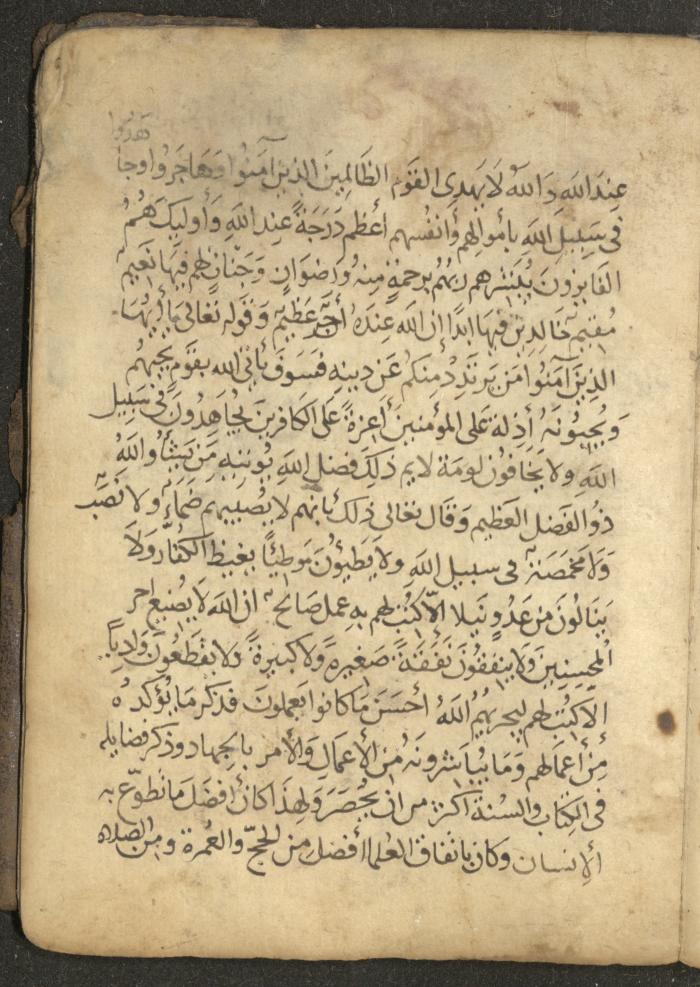 هدوا
عِندَ اللهِ وَاللهُ لَا يَهدِى القَوْمَ الظَالِمِينَ الذِينَ آمَنُوا وَهَاجَرُوا وجا
فى سَبِيلِ اللهِ بأموالِهم وَأنفُسِهم أعْظَم دَرَجَةً عِندِ اللهِ وَأُوليِكَ هُمُ
الفَايِزونَ يُبَشِّرهم رَبهُم بِرحمةٍ مِنهُ وَرِضوَانٍ وَجَنَّاتٍ لَهم فِيهَا نَعِيم
مُقيم خَالِدِينَ فِيهَا ابَدًا إن اللهَ عِندَهُ أجْر عَظِيم وَقَوله تعَالى يا أَيُّهَا
الذِينَ آمَنُوا مَن يَرتَدِدْ مِنكم عَن دِينِهِ فَسَوفَ يأتى الله بقَومٍ يُحِبهُم
وَيُحِبُونَهُ أذِلة عَلى المؤمنينَ أعِزةً عَلى الكافرينَ يُجَاهدُونَ فى سَبِيل
اللهِ ولا يَخَافُونَ لومَة لايم ذلكَ فضل اللهِ يُوتيهِ مَن يَشَأُ وَاللهُ
ذوُ الفَضل العَظِيم وَقَال تعَالى ذلكَ بأنهم لا يصيبهم ضَمَاءٌ ولا نَصَب
وَلَا مخمَصَة فى سبيل اللهِ ولا يَطَئِؤُنَ مَوطِئًا يغيظ الكفَّار وَلَا
يَنَالُونَ مِن عَدُوٍ نَيلا إلّا كُتِبَ لهم بهِ عمل صَالح ان اللهَ لا يُضيع اجر
المُحِسِنينَ وَلَا يُنفِقُونَ نَفَقَةً صَغِيرَةً وَلا كبيرةً ولا يَقطَعُونَ وَادِيًا
إلا كُتِبَ لهم ليجزيَهُمُ اللهُ أحْسَنَ مَا كانوا يَعملونَ فذكرَ مَا يُؤكدُه
مِنْ أعمَالهم وَمَا يُبَاشرونَهُ مِنَ الأعمَالِ وَالأمر بالجِهاد وذكر فضايله
فى الكِتاب والسُنة اكثر من ان يُحْصَرَ وَلِهذَا كانَ أفضَلَ مَا تطوّع به
الإنسان وكان باتفاق العُلما أفضل مِن الحجِّ والعُمرة ومن الصلاة